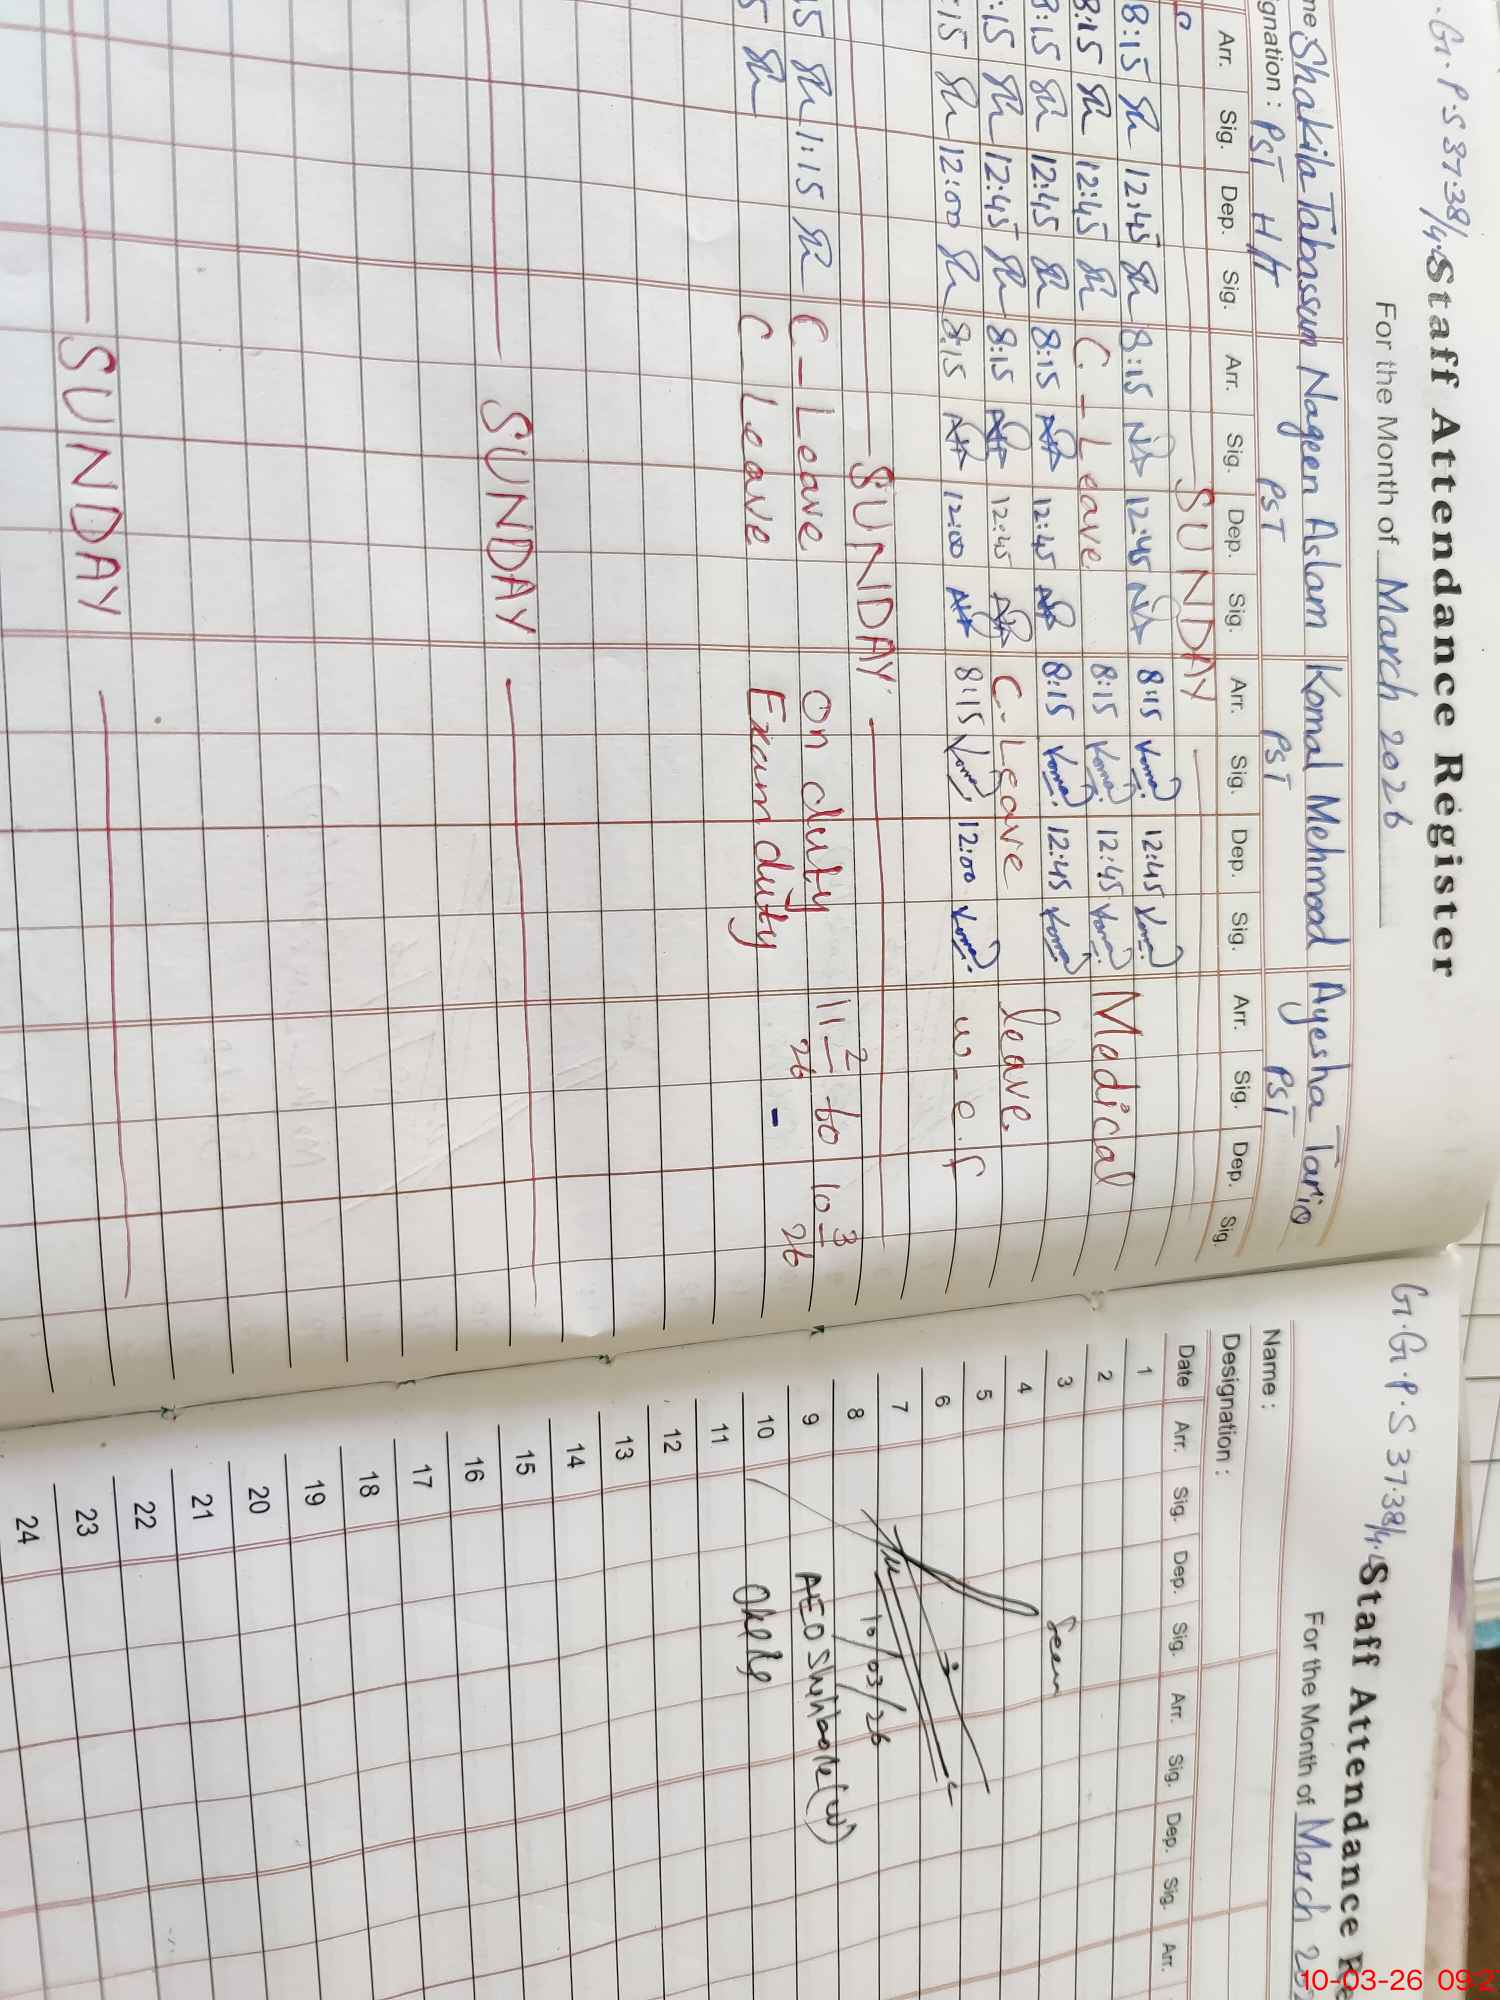 .G.P.S 37.38/4.L Staff Attendance Register
For the Month of March 2026
me: Shakila Tabassum Nageen Aslam Komal Mehmood Ayesha Tariq
gnation : PST H/T PST PST PST
Arr. Sig. Dep. Sig. Arr. Sig. Dep. Sig. Arr. Sig. Dep. Sig. Arr. Sig. Dep. Sig.
SUNDAY
8:15 Sh 12:45 Sh 8:15 NA 12:45 NA 8:15 Komal 12:45 Komal
8:15 Sh 12:45 Sh C - Leave 8:15 Komal 12:45 Komal Medical
8:15 Sh 12:45 Sh 8:15 NA 12:45 NA 8:15 Komal 12:45 Komal
:15 Sh 12:45 Sh 8:15 NA 12:45 NA C-Leave leave
:15 Sh 12:00 Sh 8:15 NA 12:00 NA 8:15 Komal 12:00 Komal w-e.f
SUNDAY
15 Sh 1:15 Sh C - Leave On duty 11 2/26 to 10 3/26
5 Sh C Leave Exam duty -
SUNDAY
SUNDAY
G.G.P.S 37.38/4.L Staff Attendance Re
For the Month of March 20
Name :
Designation :
Date Arr. Sig. Dep. Sig. Arr. Sig. Dep. Sig. Arr.
1
2
3 Seen
4
5
6
7
8 10/03/26
9 AEO Shahbore (w)
10 Okara
11
12
13
14
15
16
17
18
19
20
21
22
23
24
10-03-26 09:2